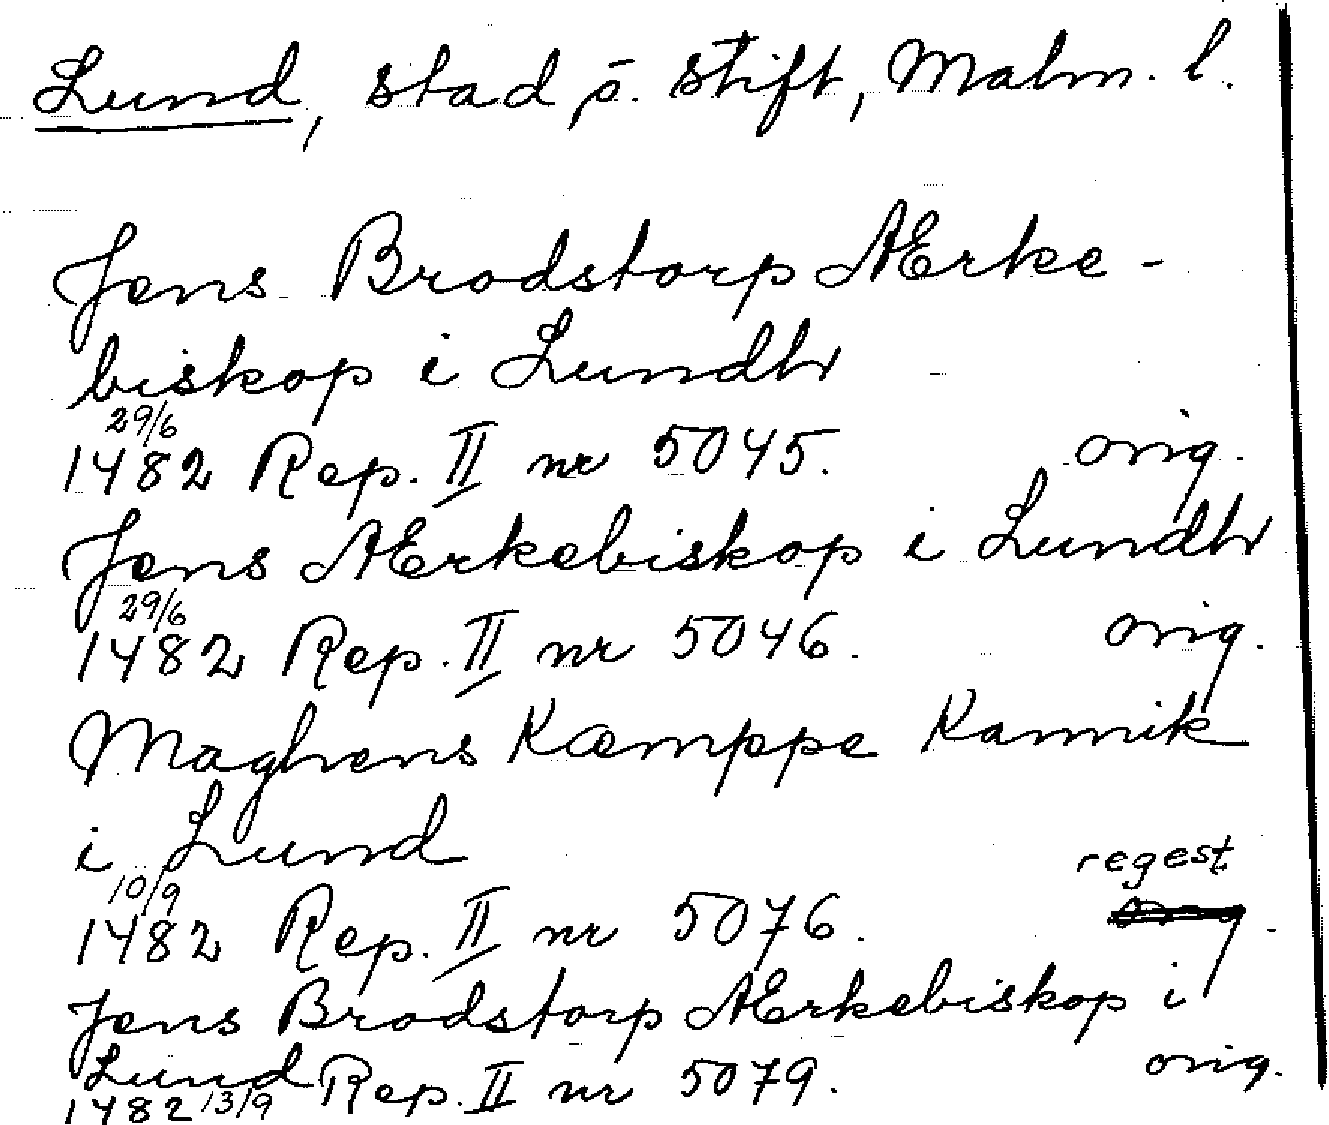 Lund, stad o. stift, Malm. l.
Jens Brodstorp Ærke-
biskop i Lundh
29/6
1482 Rep. II nr 5045. orig.
Jens Ærkebiskop i Lundh
29/6
1482 Rep. II nr 5046. orig.
Maghens Kæmppe Kannik
i Lund
10/9 regest
1482 Rep. II nr 5076.
Jens Brodstorp Ærkebiskop i
Lund Rep. II nr 5079. orig.
1482 13/9